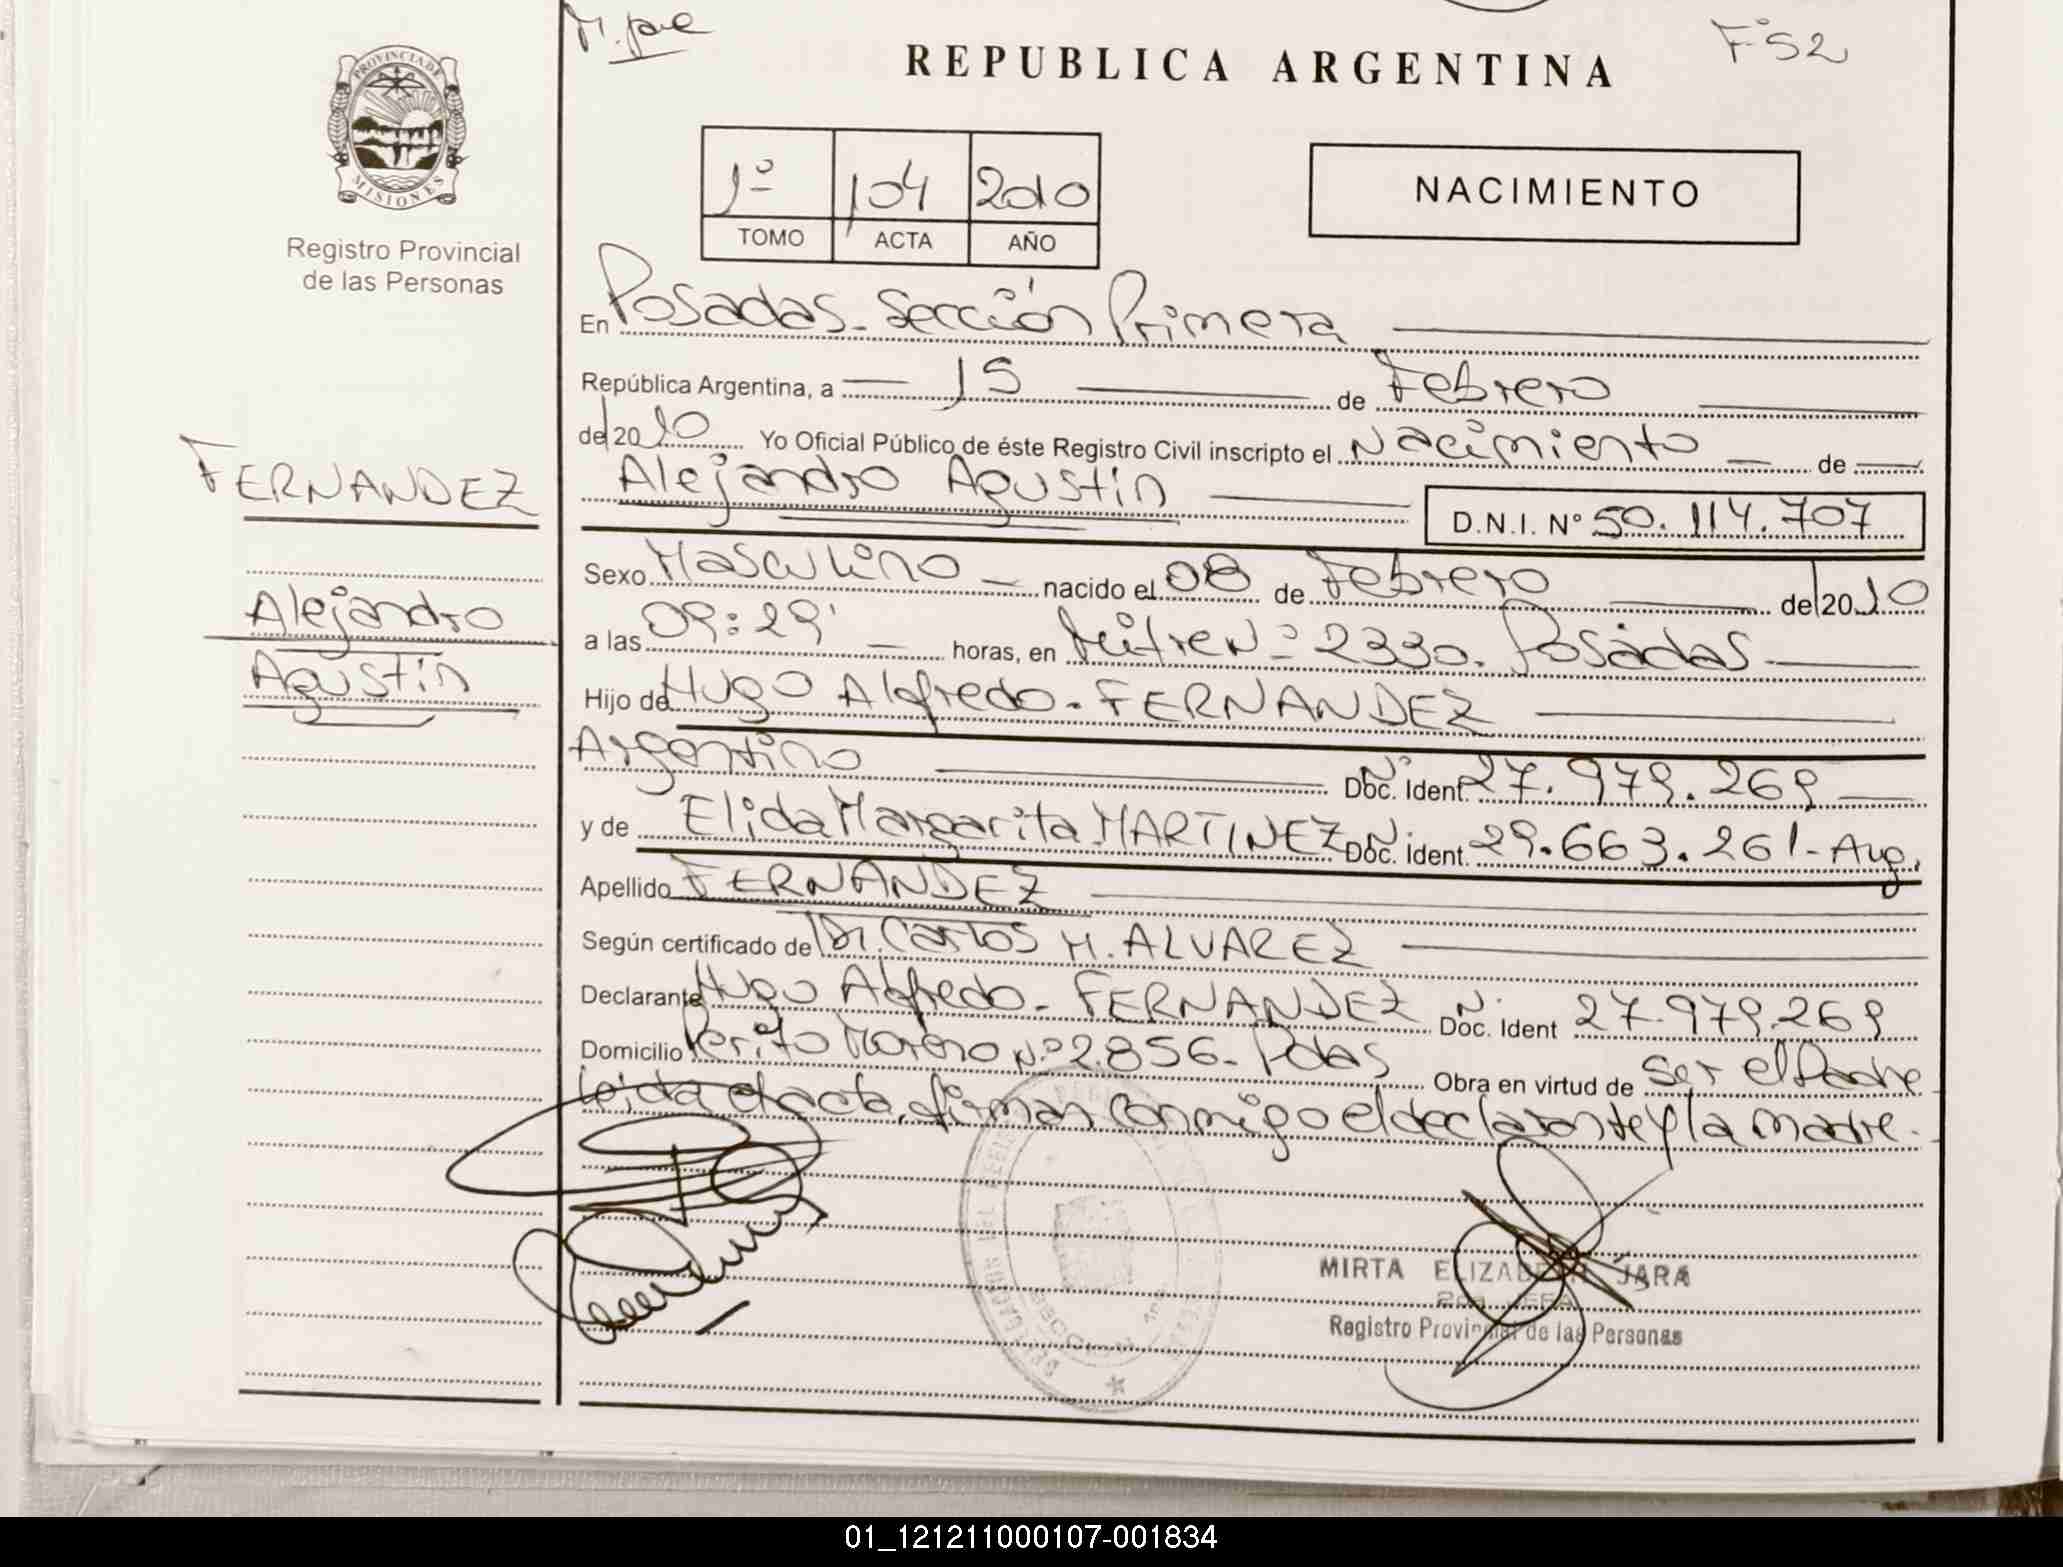 Fº52
REPUBLICA ARGENTINA
PROVINCIA DE
MISIONES
Registro Provincial
de las Personas
1º 104 2010
TOMO ACTA AÑO
NACIMIENTO
En Posadas. Sección Primera
República Argentina, a 15 de Febrero
del 2010 Yo Oficial Público de éste Registro Civil inscripto el Nacimiento de
Alejandro Agustín D.N.I. Nº 50.114.707
FERNANDEZ
Alejandro
Agustín
Sexo Masculino nacido el 08 de Febrero del 2010
a las 09:29' horas, en Mitre Nº 2330. Posadas
Hijo de Hugo Alfredo. FERNANDEZ
Argentino Nº Doc. Ident. 27.979.269
y de Elida Margarita MARTINEZ Nº Doc. Ident. 29.663.261- Arg.
Apellido FERNANDEZ
Según certificado de Dr. Carlos H. ALVAREZ
Declarante Hugo Alfredo. FERNANDEZ Nº Doc. Ident 27.979.269
Domicilio Perito Moreno Nº 2.856- Pdas Obra en virtud de ser el Padre
Leida el acta, firman conmigo el declarante y la madre.
MIRTA ELIZABETH JARA
2da JEFA
Registro Provincial de las Personas
01_121211000107-001834